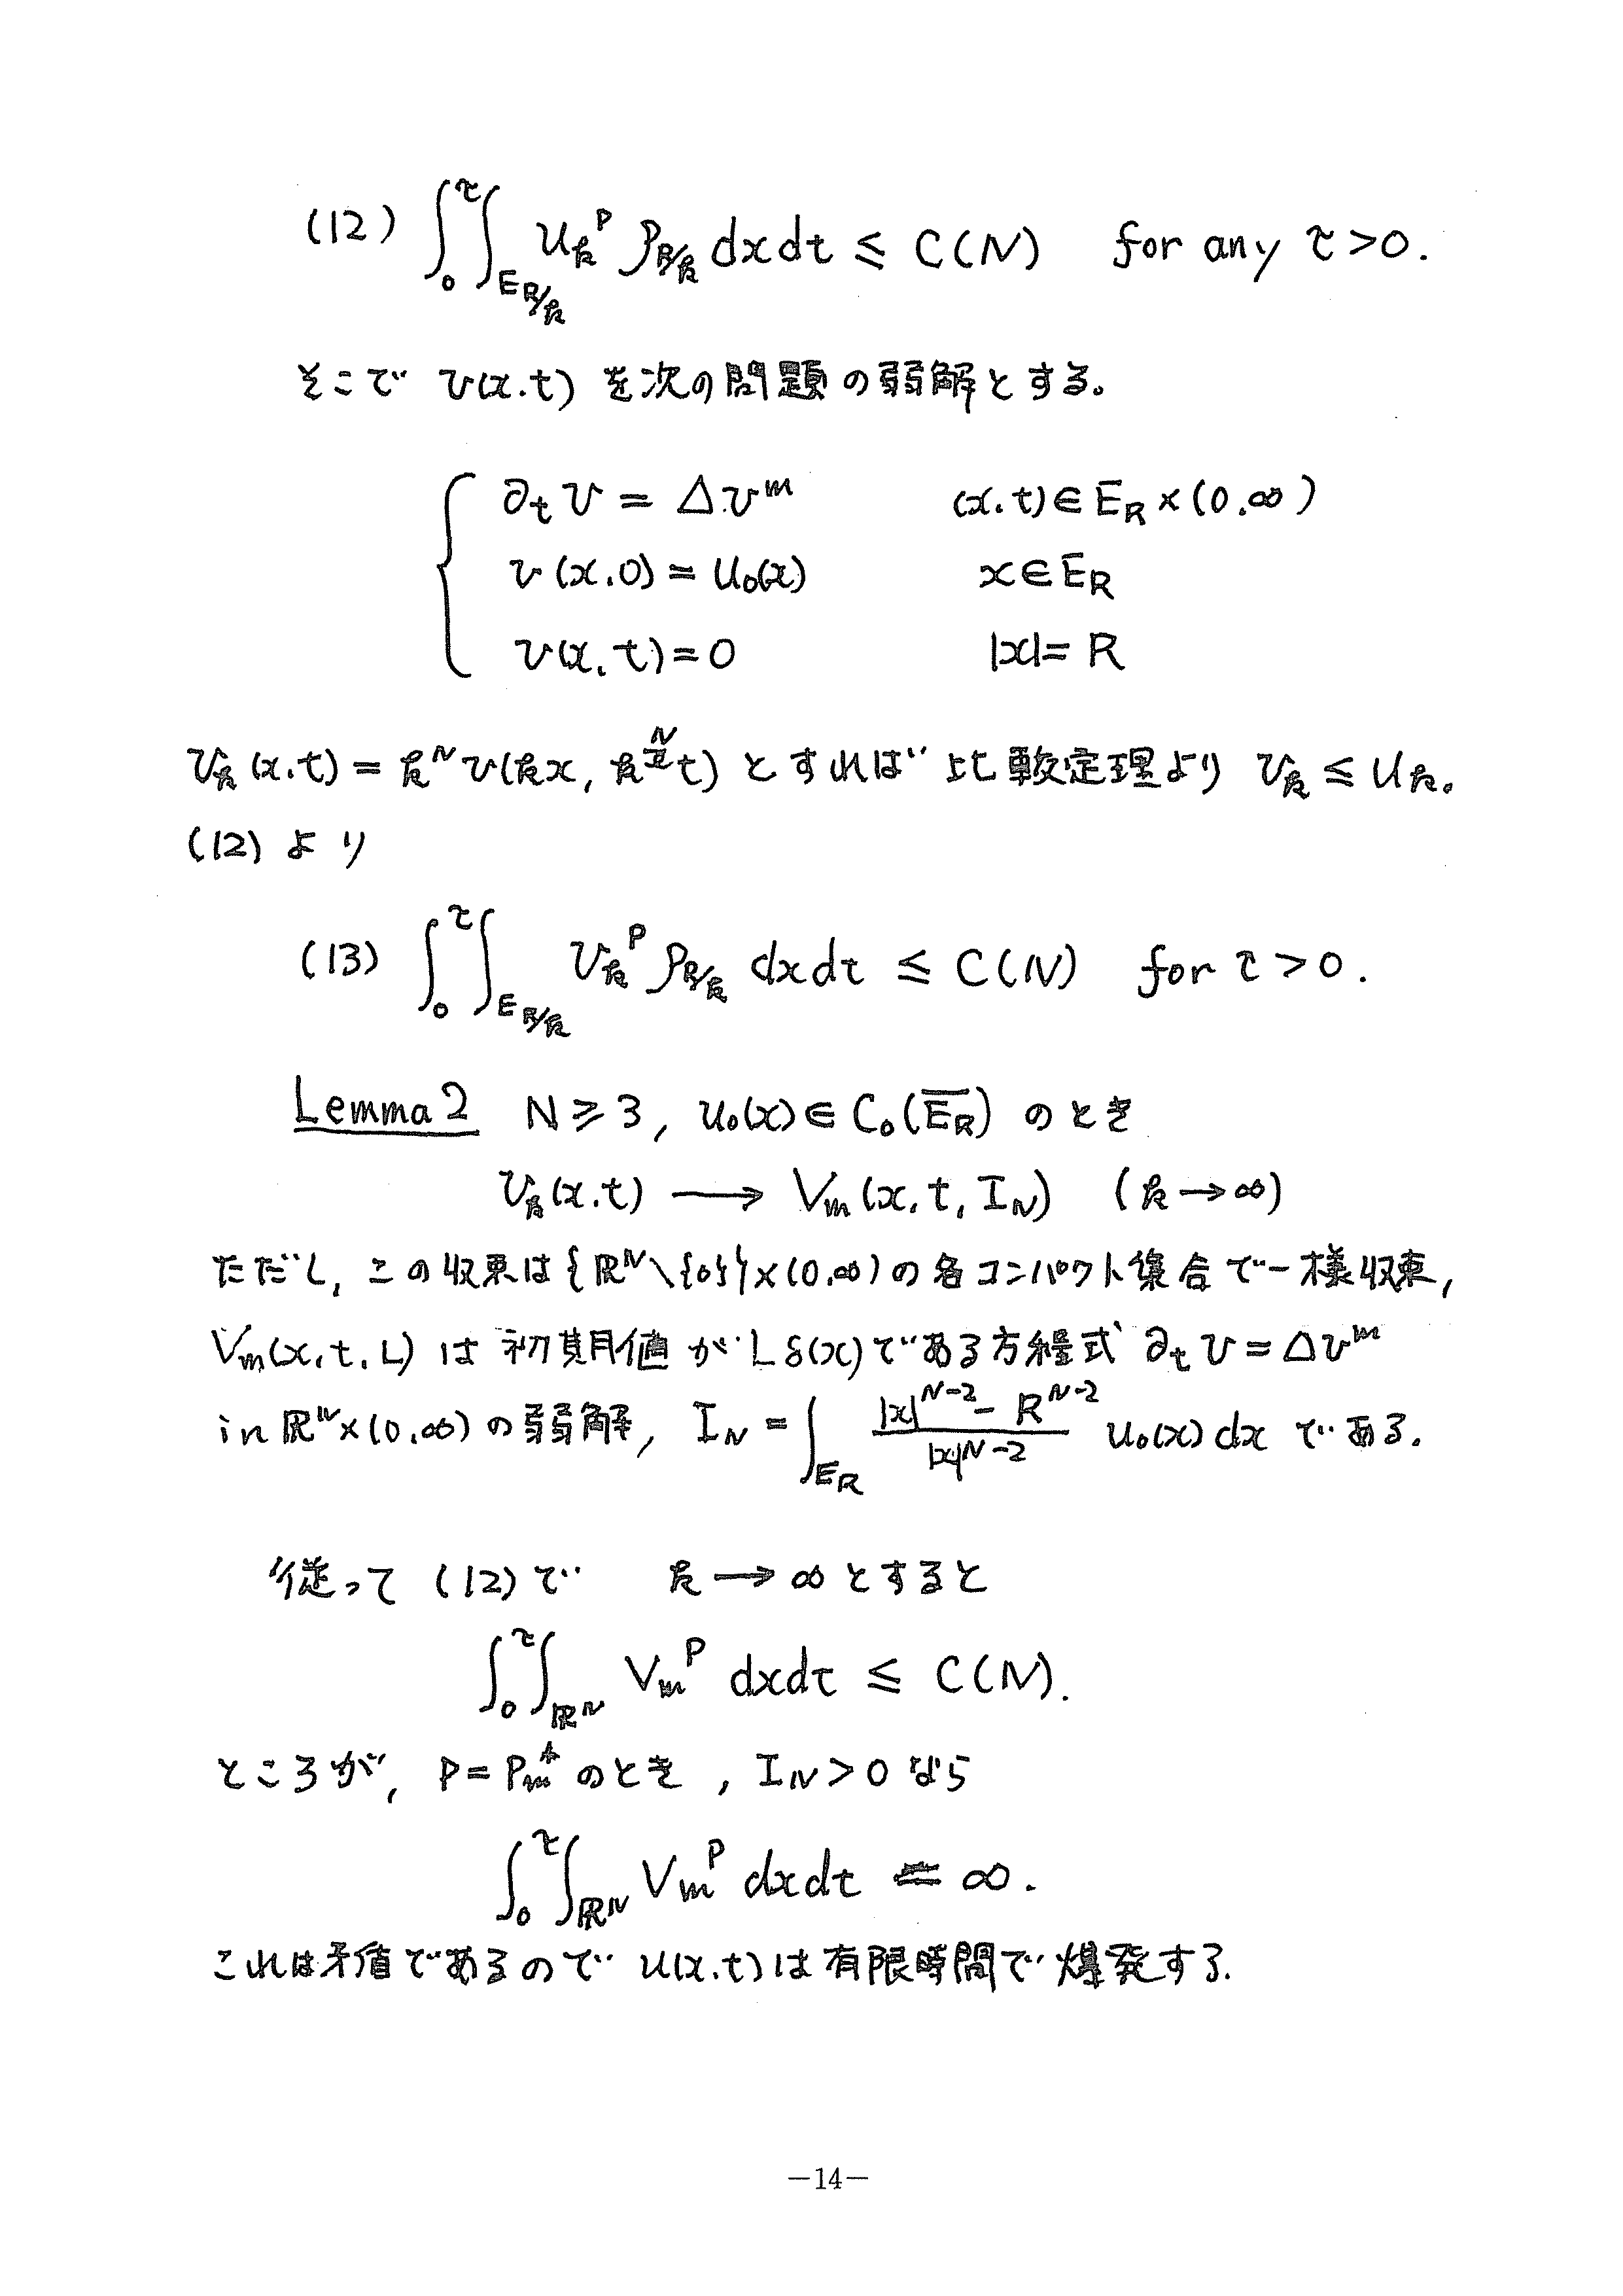 (12) ∫₀^τ ∫_{E_{R/k}} u_k^p ρ_{R/k} dxdt ≦ C(N) for any τ>0.
そこで v(x.t) を次の問題の弱解とする。
∂_t v = Δv^m (x.t)∈E_R×(0.∞)
v(x.0) = u₀(x) x∈E_R
v(x.t)=0 |x|=R
v_k(x.t) = k^N v(kx, k^{N/l}t) とすれば 比較定理より v_k ≦ u_k。
(12) より
(13) ∫₀^τ ∫_{E_{R/k}} v_k^p ρ_{R/k} dxdt ≦ C(N) for τ>0.
Lemma 2 N≧3, u₀(x)∈C₀(\overline{E_R}) のとき
v_k(x.t) ⟶ V_m(x.t, I_N) (k→∞)
ただし, この収束は{ℝ^N\{0}}×(0.∞)の各コンパクト集合で一様収束,
V_m(x.t.L) は 初期値が Lδ(x)である方程式 ∂_t v = Δv^m
in ℝ^N×(0.∞) の弱解, I_N = ∫_{E_R} \frac{|x|^{N-2} - R^{N-2}}{|x|^{N-2}} u₀(x)dx である.
従って (12)で k→∞とすると
∫₀^τ ∫_{ℝ^N} V_m^p dxdt ≦ C(N).
ところが, p=p_m^* のとき, I_N>0 なら
∫₀^τ ∫_{ℝ^N} V_m^p dxdt = ∞.
これは矛盾であるので u(x.t)は有限時間で爆発する.
—14—